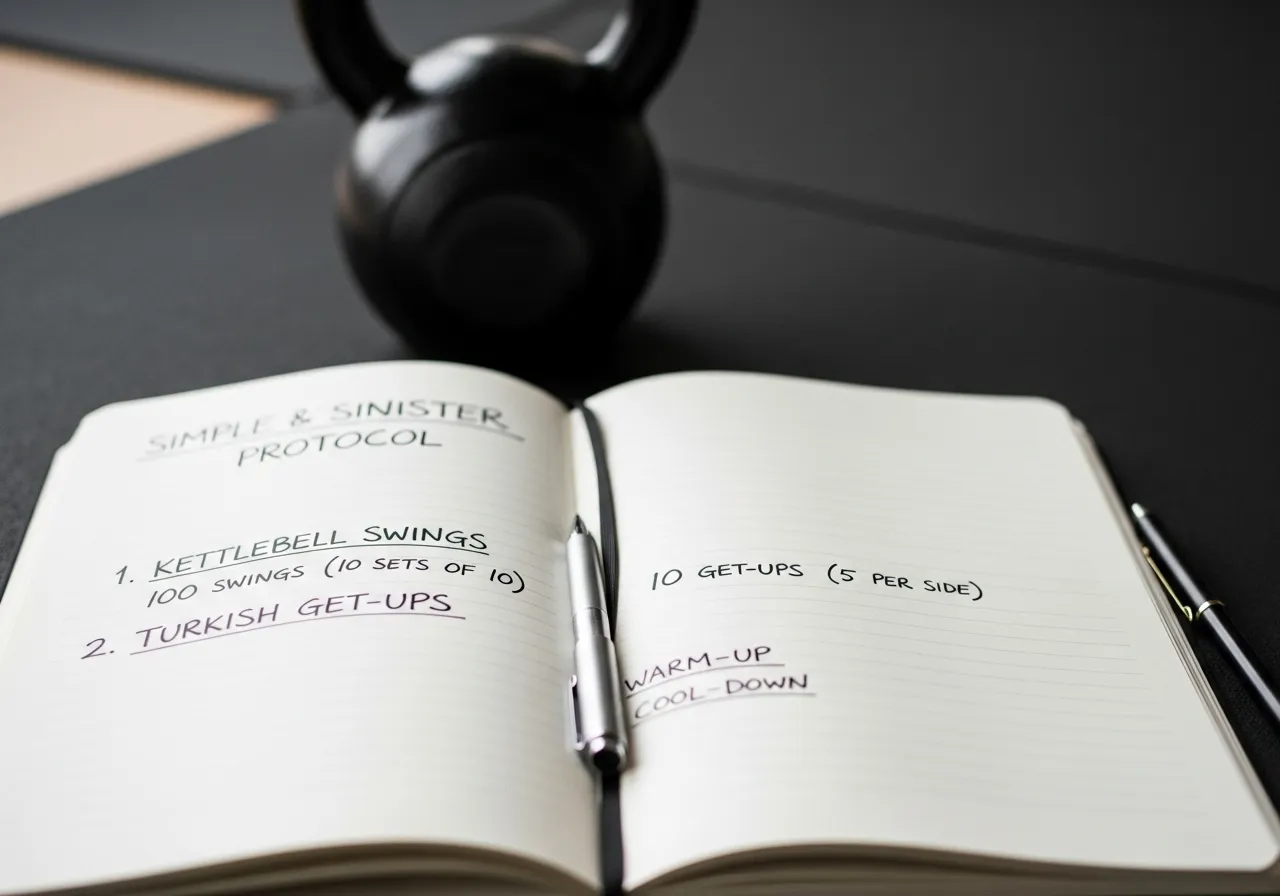 SIMPLE & SINISTER
PROTOCOL
1. KETTLEBELL SWINGS
100 SWINGS (10 SETS OF 10)
2. TURKISH GET-UPS
10 GET-UPS (5 PER SIDE)
WARM-UP
COOL-DOWN